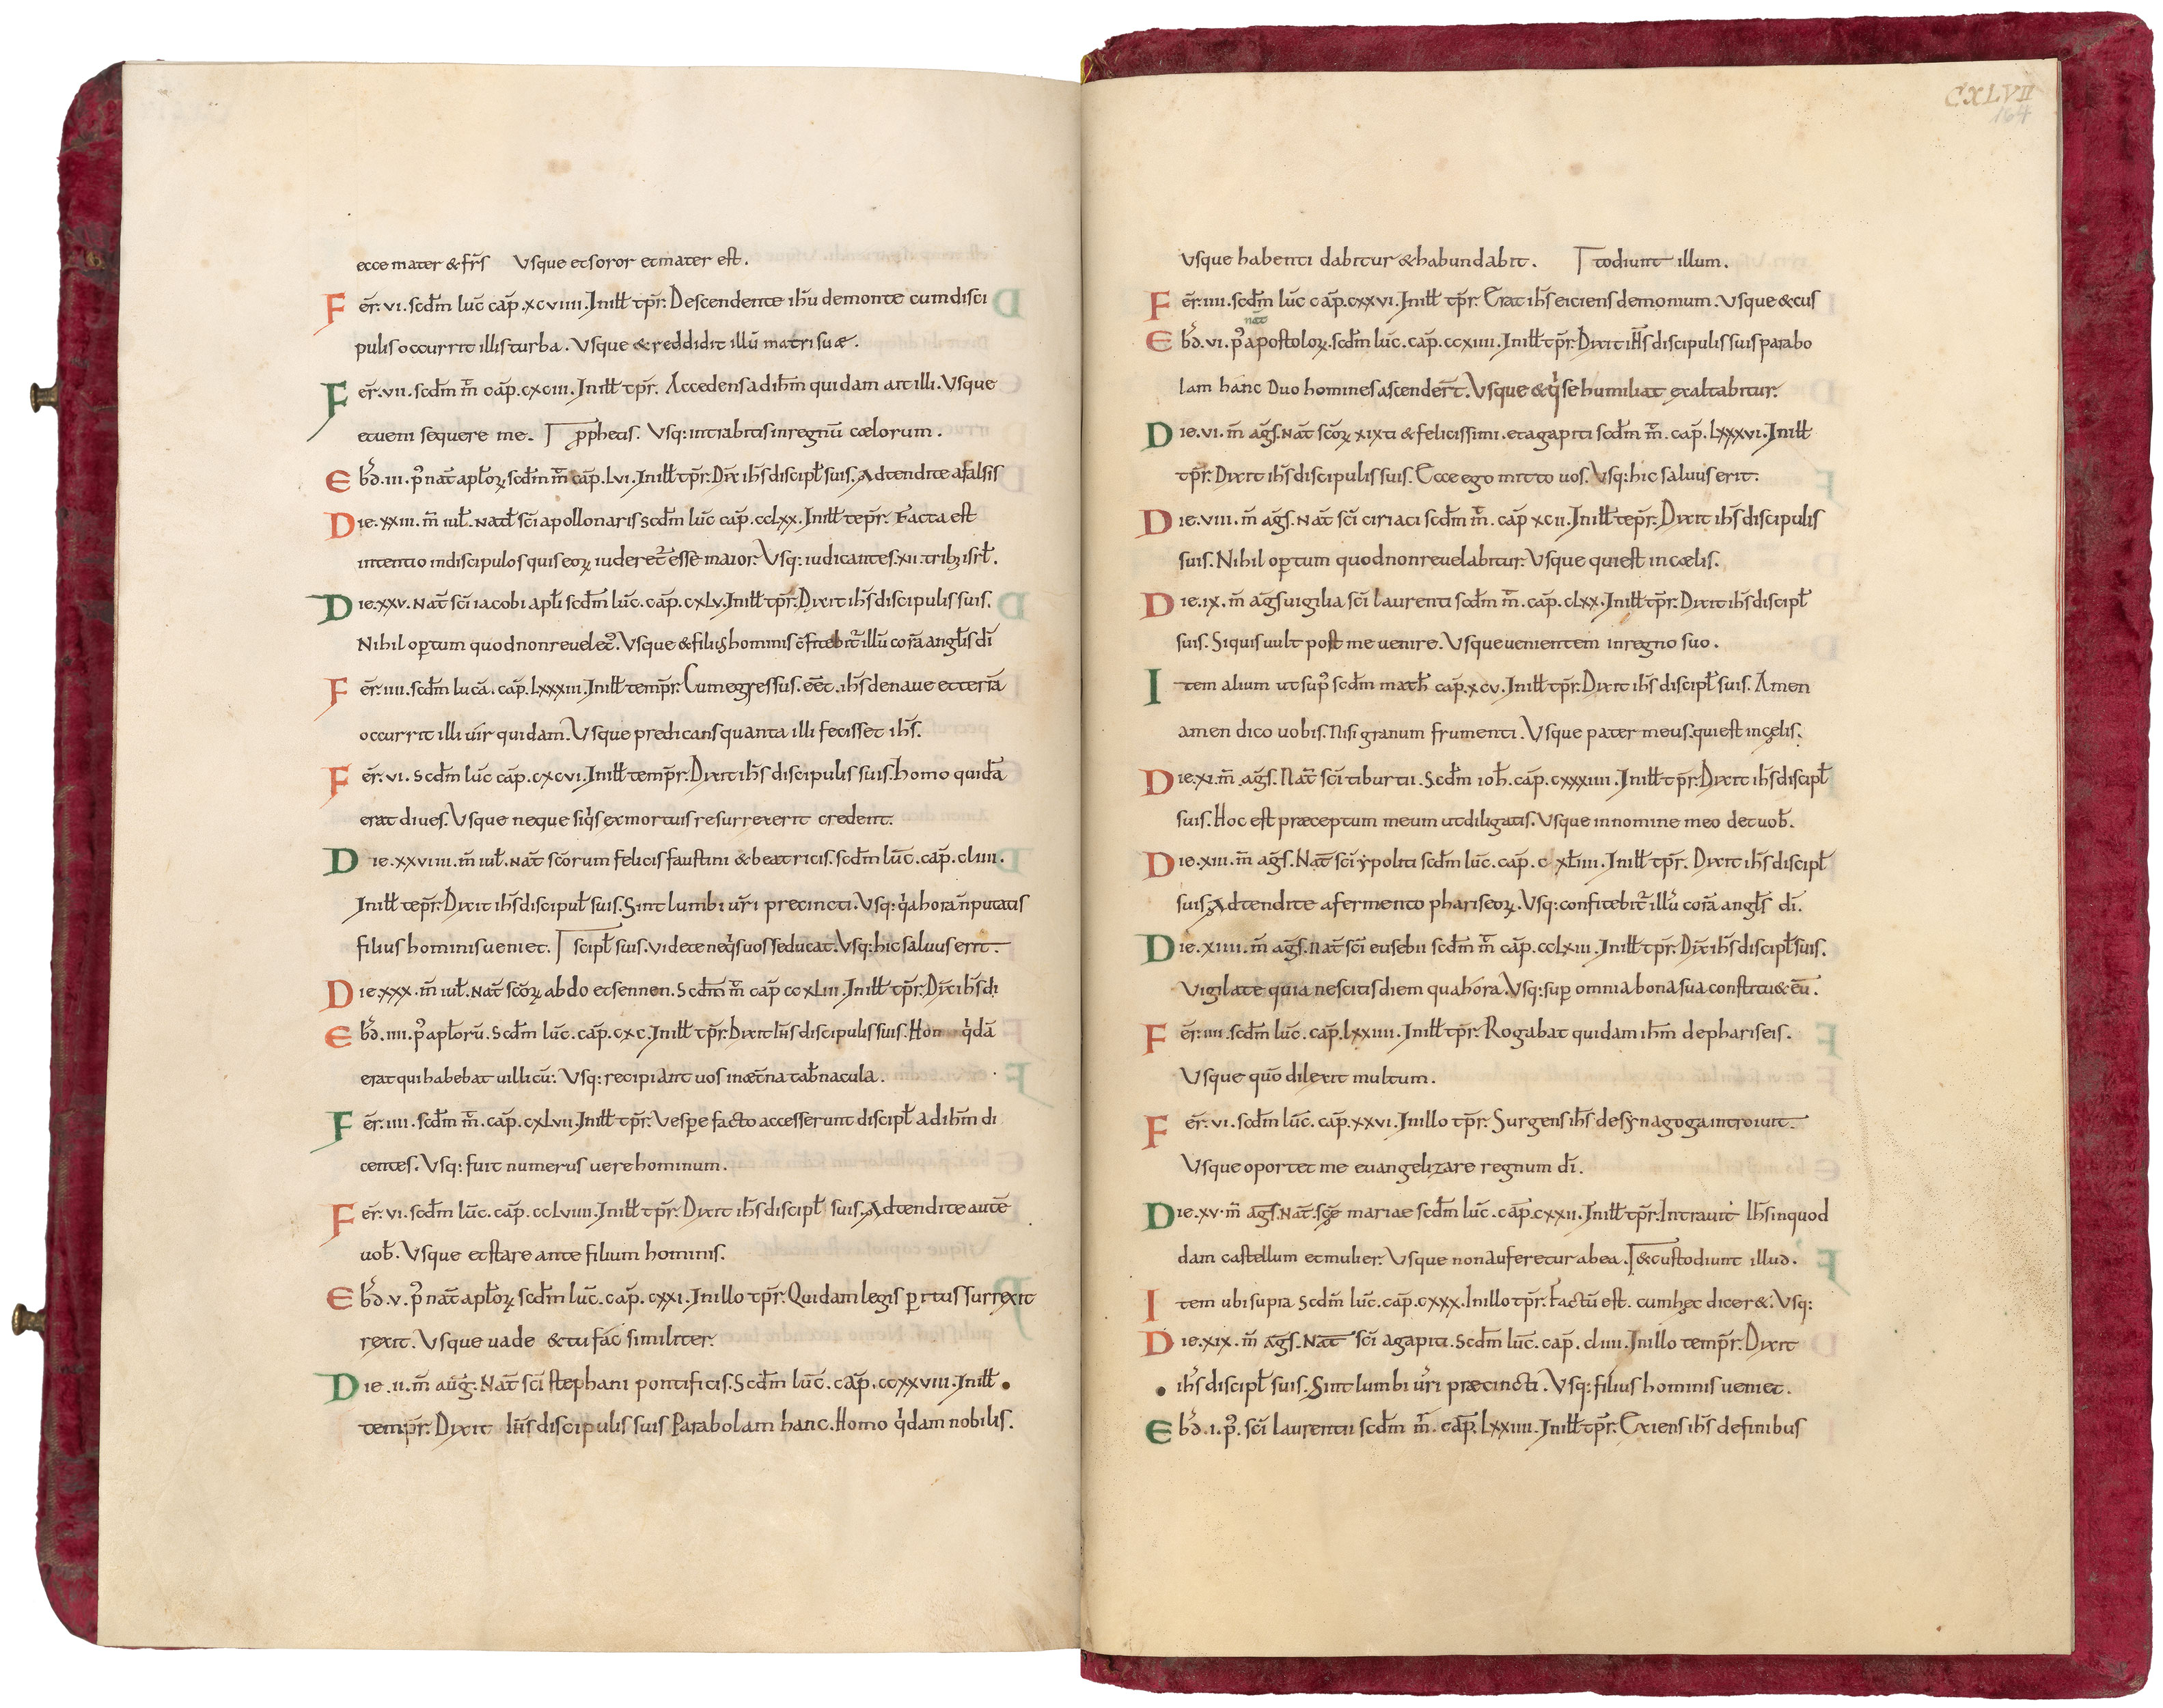 ecce mater & fr̅s Vsque et soror et mater est.
Fer̅. vi. scd̅m luc̅ cap̅. xcviiii. In ill̅ tp̅r. Descendente ih̅u de monte cum disci
pulis occurrit illis turba. Vsque & reddidit illu̅ matri suæ.
Fer̅. vii. scd̅m m̅ cap̅. cxciii. In ill̅ tp̅r. Accedens ad ih̅m quidam ait illi. Vsque
et ueni sequere me. pphetis. Vsq: intrabitis in regnu̅ cælorum.
Ebd̅. iii. p̉ nat̅ aplo̅ꝝ. scd̅m m̅ cap̅. lvi. In ill̅ tp̅r. Dix̅ ih̅s discipl̅ suis. Adtendite a falsis
Die. xxiii. m̅ iul̅. nat̅ sc̅i apollonaris scd̅m luc̅ cap̅. cclxx. In ill̅ tep̅r. Facta est
intentio in discipulos quis eoꝝ uideret̉ esse maior. Vsq: iudicantes. xii. tribꝫ isrl̅.
Die. xxv. nat̅ sc̅i iacobi apl̅i scd̅m luc̅. cap̅. cxlv. In ill̅ tp̅r. Dixit ih̅s discipulis suis.
Nihil opertum quod non reuelet̉. Vsque & filius hominis c̅fitebit̉ illu̅ cora̅ angl̅is di̅
Fer̅. iiii. scd̅m luca̅. cap̅. lxxxiii. In ill̅ temp̅r. Cum egressus. ee̅t. ih̅s de naue et terra̅
occurrit illi uir quidam. Vsque predicans quanta illi fecisset ih̅s.
Fer̅. vi. scd̅m luc̅ cap̅. cxcvi. In ill̅ temp̅r. Dixit ih̅s discipulis suis. homo quida̅
erat diues. Vsque neque siq̉s ex mortuis resurrexerit credent.
Die. xxviiii. m̅ iul̅. nat̅ sc̅orum felicis faustini & beatricis. scd̅m luc̅. cap̅. cliiii.
In ill̅ tep̅r. Dixit ih̅s discipul̅ suis. Sint lumbi ur̅i precincti. Vsq: q̉a hora n̅ putatis
filius hominis ueniet. scipl̅ suis. uidete neq̉s uos seducat. Vsq: hic saluus erit.
Die. xxx. m̅ iul̅. nat̅ sc̅oꝝ abdo et sennen. Scd̅m m̅ cap̅ ccxliii. In ill̅ tp̅r. Dix̅ ih̅s di
Ebd̅. iiii. p̉ aplo̅ru̅. Scd̅m luc̅. cap̅. cxc. In ill̅ tp̅r. Dixit ih̅s discipulis suis. Hom q̉da̅
erat qui habebat uillicu̅. Vsq: recipiant uos in æt̅na tab̅nacula.
Fer̅. iiii. scd̅m m̅. cap̅. cxlvii. In ill̅ tp̅r. Vespe facto accesserunt discipl̅ ad ih̅m di
centes. Vsq: fuit numerus uere hominum.
Fer̅. vi. scd̅m luc̅. cap̅. cclviiii. In ill̅ tp̅r. Dixit ih̅s discipl̅ suis. Adtendite aute̅
uob̅. Vsque et stare ante filium hominis.
Ebd̅. v. p̉ nat̅ aplo̅ꝝ. scd̅m luc̅. cap̅. cxxi. In illo tp̅r. Quidam legis pritus surrexit
rexit. Vsque uade & tu fac similiter.
Die. ii. m̅ aug̅. Nat̅ sc̅i stephani pontificis. Scd̅m luc̅. cap̅. ccxxviii. In ill̅
temp̅r. Dixit ih̅s discipulis suis Parabolam hanc. Homo q̉dam nobilis.
CXLVII
164
Vsque habenti dabitur & habundabit. todiunt illum.
Fer̅. iiii. scd̅m luc̅ cap̅. cxxvi. In ill̅ tp̅r. Erat ih̅s eiciens demonium. Vsque & cus
nat̅
Ebd̅. vi. p̉ apostoloꝝ. scd̅m luc̅. cap̅. ccxiiii. In ill̅ tp̅r. Dixit ih̅s discipulis suis parabo
lam hanc Duo homines ascender̅t. Vsque & q̉ se humiliat exaltabitur.
Die. vi. m̅ ag̅s. Nat̅ sc̅oꝝ xixti & felicissimi. et agapiti scd̅m m̅. cap̅. lxxxvi. In ill̅
tp̅r. Dixit ih̅s discipulis suis. Ecce ego mitto uos. Vsq: hic saluus erit.
Die. viii. m̅ ag̅s. Nat̅ sc̅i ciriaci scd̅m m̅. cap̅ xcii. In ill̅ tep̅r. Dixit ih̅s discipulis
suis. Nihil optum quod non reuelabitur. Vsque qui est in cælis.
Die. ix. m̅ ag̅s uigilia sc̅i laurenti scd̅m m̅. cap̅. clxx. In ill̅ tp̅r. Dixit ih̅s discipl̅
suis. Siquis uult post me uenire. Vsque uenientem in regno suo.
Item alium ut sup̉ scd̅m math̅ cap̅. xcv. In ill̅ tp̅r. Dixit ih̅s discipl̅ suis. Amen
amen dico uobis. Nisi granum frumenti. Vsque pater meus. qui est in cęlis.
Die. xi. m̅ ag̅s. Nat̅ sc̅i tiburtii. Scd̅m ioh̅. cap̅. cxxxiiii. In ill̅ tp̅r. Dixit ih̅s discipl̅
suis. Hoc est præceptum meum ut diligatis. Vsque in nomine meo det uob̅.
Die. xiii. m̅ ag̅s. Nat̅ sc̅i ypoliti scd̅m luc̅. cap̅. c xliiii. In ill̅ tp̅r. Dixit ih̅s discipl̅
suis. Adtendite a fermento phariseoꝝ. Vsq: confitebit̉ illu̅ cora̅ angl̅s di̅.
Die. xiiii. m̅ ag̅s. nat̅ sc̅i eusebii scd̅m m̅ cap̅. cclxiii. In ill̅ tp̅r. Dix̅ ih̅s discipl̅ suis.
Vigilate quia nescitis diem qua hora. Vsq: sup omnia bona sua constitu& eu̅.
Fer̅. iiii. scd̅m luc̅. cap̅. lxxiiii. In ill̅ tp̅r. Rogabat quidam ih̅m de phariseis.
Vsque quo̅ dilexit multum.
Fer̅. vi. scd̅m luc̅. cap̅. xxvi. In illo tp̅r. Surgens ih̅s de synagoga introiuit.
Vsque oportet me euangelizare regnum di̅.
Die. xv. m̅ ag̅s. Nat̅. sc̅ę mariae scd̅m luc̅. cap̅. cxxii. In ill̅ tp̅r. Intrauit ih̅s in quod
dam castellum et mulier. Vsque non auferetur ab ea. & custodiunt illud.
Item ubi supra Scd̅m luc̅. cap̅. cxxx. In illo tp̅r. Factu̅ est. cum hęc dicer&. Vsq:
Die. xix. m̅ ag̅s. Nat̅ sc̅i agapiti. Scd̅m luc̅. cap̅. cliiii. In illo temp̅r. Dixit
ih̅s discipl̅ suis. Sint lumbi ur̅i præcincti. Vsq: filius hominis ueniet.
Ebd̅. i. p̉. sc̅i laurentii scd̅m m̅. cap̅. lxxiiii. In ill̅ tp̅r. Exiens ih̅s de finibus